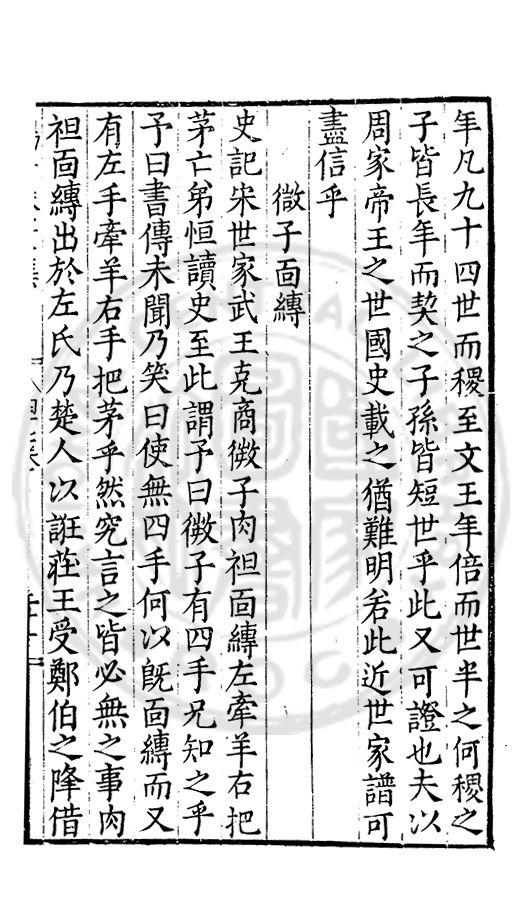 年凡九十四世而稷至文王年倍而世半之何稷之
子皆長年而契之子孫皆短世乎此又可證也夫以
周家帝王之世國史載之猶難明若此近世家譜可
盡信乎
微子面縛
史記宋世家武王克商微子肉袒面縛左牽羊右把
茅亡弟恒讀史至此謂予曰微子有四手兄知之乎
予曰書傳未聞乃笑曰使無四手何以旣面縛而又
有左手牽羊右手把茅乎然究言之皆必無之事肉
袒面縛出於左氏乃楚人以誑莊王受鄭伯之降借